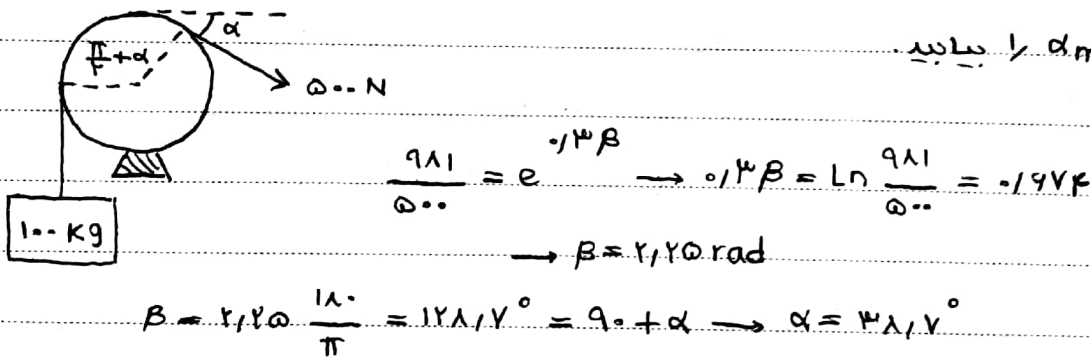 αm را بیابید.
α
π/۲ + α
۵۰۰ N
۱۰۰ Kg
۹۸۱/۵۰۰ = e^۰/۳β → ۰/۳β = Ln ۹۸۱/۵۰۰ = ۰/۶۷۴
→ β = ۲/۲۵ rad
β = ۲/۲۵ ۱۸۰/π = ۱۲۸/۷° = ۹۰ + α → α = ۳۸/۷°